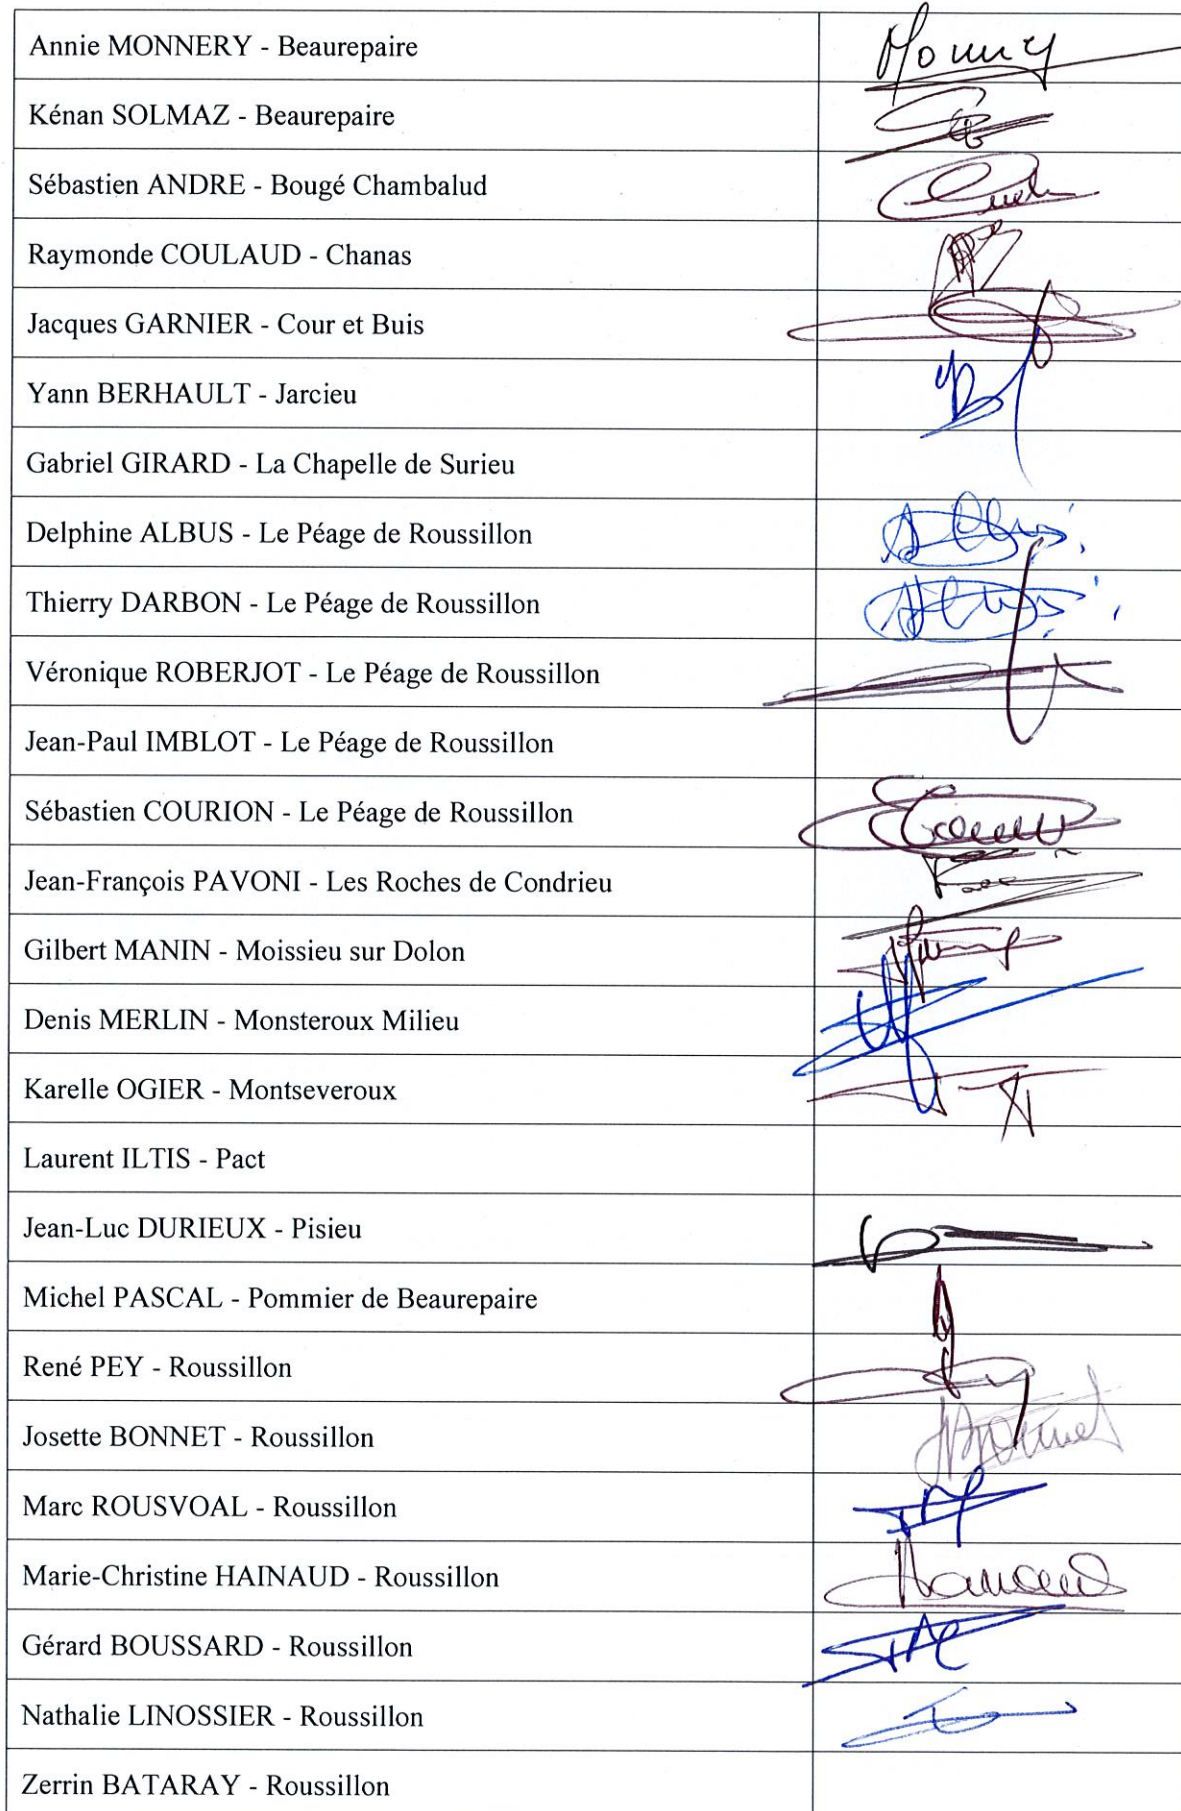 Annie MONNERY - Beaurepaire
Kénan SOLMAZ - Beaurepaire
Sébastien ANDRE - Bougé Chambalud
Raymonde COULAUD - Chanas
Jacques GARNIER - Cour et Buis
Yann BERHAULT - Jarcieu
Gabriel GIRARD - La Chapelle de Surieu
Delphine ALBUS - Le Péage de Roussillon
Thierry DARBON - Le Péage de Roussillon
Véronique ROBERJOT - Le Péage de Roussillon
Jean-Paul IMBLOT - Le Péage de Roussillon
Sébastien COURION - Le Péage de Roussillon
Jean-François PAVONI - Les Roches de Condrieu
Gilbert MANIN - Moissieu sur Dolon
Denis MERLIN - Monsteroux Milieu
Karelle OGIER - Montseveroux
Laurent ILTIS - Pact
Jean-Luc DURIEUX - Pisieu
Michel PASCAL - Pommier de Beaurepaire
René PEY - Roussillon
Josette BONNET - Roussillon
Marc ROUSVOAL - Roussillon
Marie-Christine HAINAUD - Roussillon
Gérard BOUSSARD - Roussillon
Nathalie LINOSSIER - Roussillon
Zerrin BATARAY - Roussillon